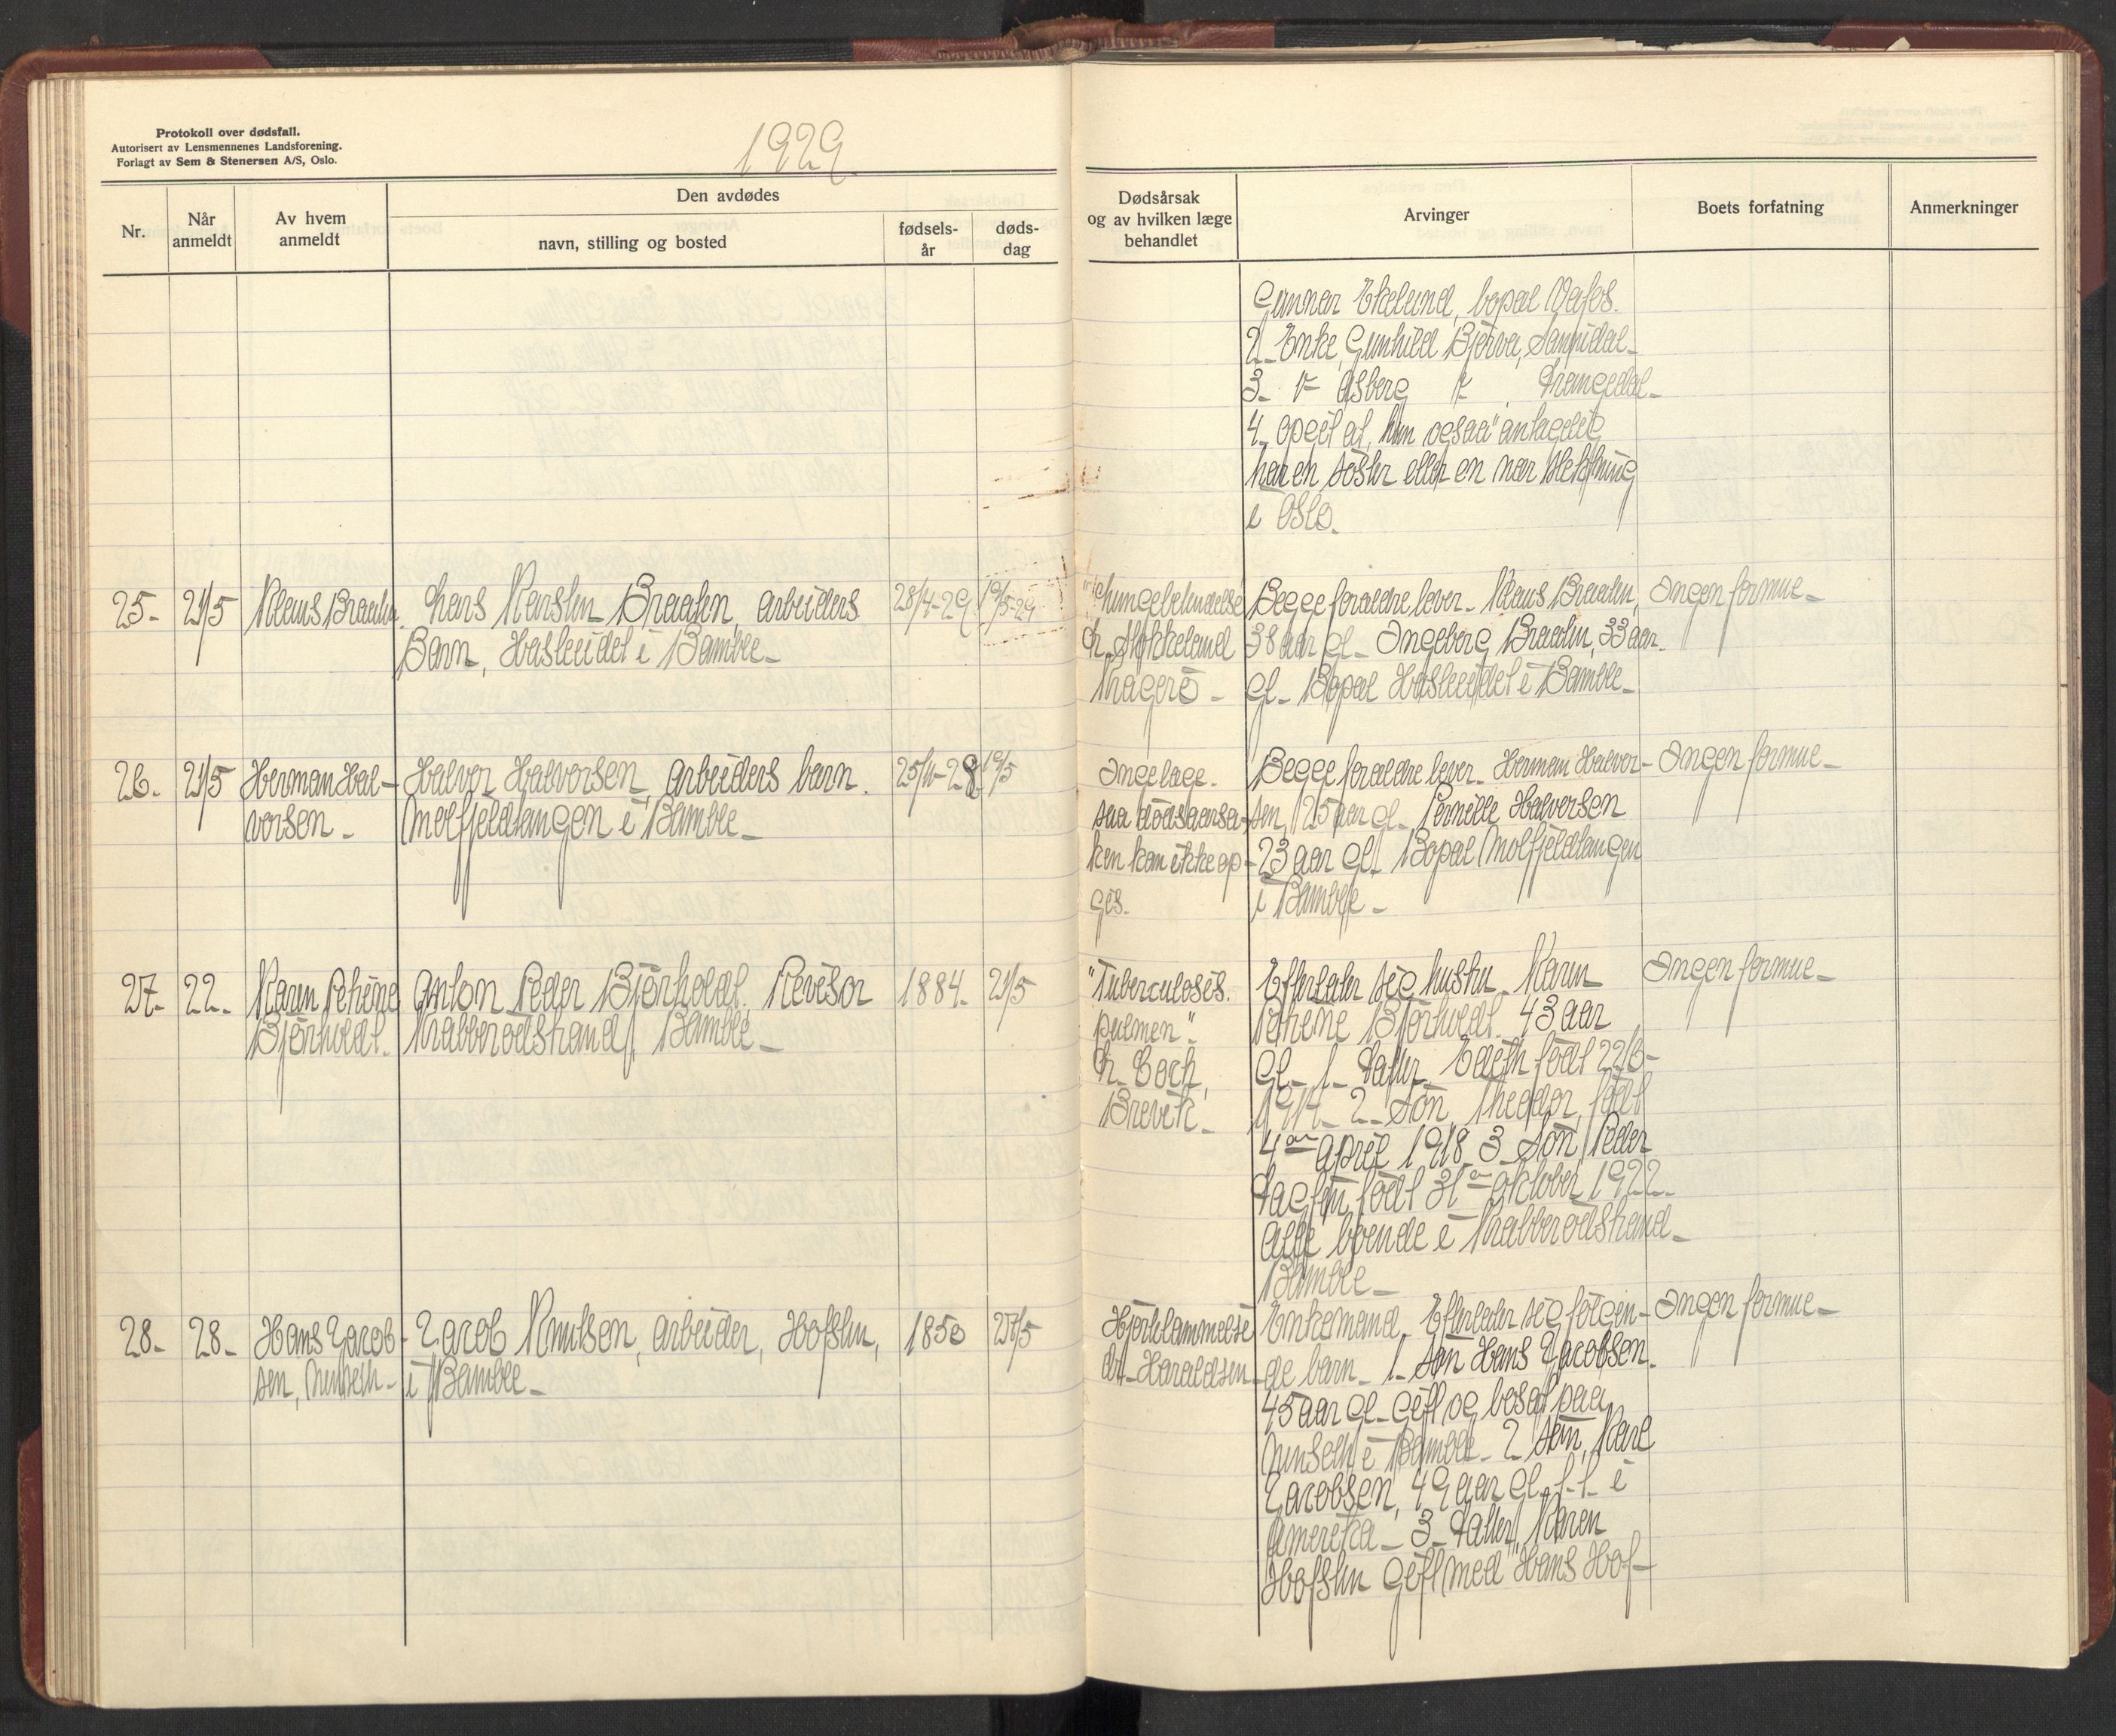 Protokoll over dødsfall.
Autorisert av Lensmennenes Landsforening.
Forlagt av Sem & Stenersen A/S, Oslo.
1929.
Nr.
Når
anmeldt
Av hvem
anmeldt
Den avdødes
navn, stilling og bosted
fødsels-
år
døds-
dag
Dødsårsak
og av hvilken læge
behandlet
Arvinger
Boets forfatning
Anmerkninger
Gunnar Ekelund, bopæl Vafos.
2- Enke, Gunhild Bjørva, Sannidal-
3- Asberg Drangedal-
4- Opgit at hun ogsaa antagelig
har en søster eller en nær slektning
i Oslo.
25- 21/5 Klaus Braaten. Lars Karsten Braaten, arbeiders 28/4-29 19/5-29
Barn, Hasleidet i Bamble-
"Lungebetendelse
Dr. Stokkeland
Kragerø-
Begge foraldre lever- Klaus Braaten,
38 aar gl- Ingeborg Braaten, 33 aar.
gl- Bopæl Hasleidet i Bamble-
Ingen formue-
26. 21/5 Herman Hal- Halvor Halvorsen, arbeiders barn. 25/11-28 19/5
vorsen- Molfjeldtangen i Bamble-
Ingen læge.
saa dødsaarsa-
ken kan ikke op-
gis.
Begge foraldre lever- Herman Halvor-
sen, 25 aar gl- Pernille Halvorsen
23 aar gl. Bopæl Molfjeldtangen
i Bamble-
Ingen formue-
27- 22. Karen Petrine Anton Peder Bjørholdt. Revisor 1884. 21/5
Bjørholdt. Krabberødstrand, Bamble-
"Tuberculosis.
pulmon".
Dr. Coch,
Brevik-
Efterlater sig hustru- Karen
Petrine Bjørholdt. 43 aar
gl- 1- Datter Edith født 22/6-
2- Søn, Theodor, født
4de April 1918. 3- Søn, Peder
Dagfin, født 31te oktober 1922-
Alle boende i Krabberødstrand-
Bamble-
Ingen formue-
28- 28- Hans Jacob- Jacob Knutsen, arbeider, Hafsten, 1850 27/5
sen, Nenseth- i Bamble-
Hjertelammelse
dr- Haraldsen-
Enkemand- Efterlater sig følgen-
de barn- 1- søn Hans Jacobsen.
45 aar gl- Gift og bosat paa
Nenseth i Bamble- 2 søn, Karl
Jacobsen, 49 aar gl- f.t. i
Amerika- 3- Datter, Karen
Hafsten gift med Hans Haf-
Ingen formue-